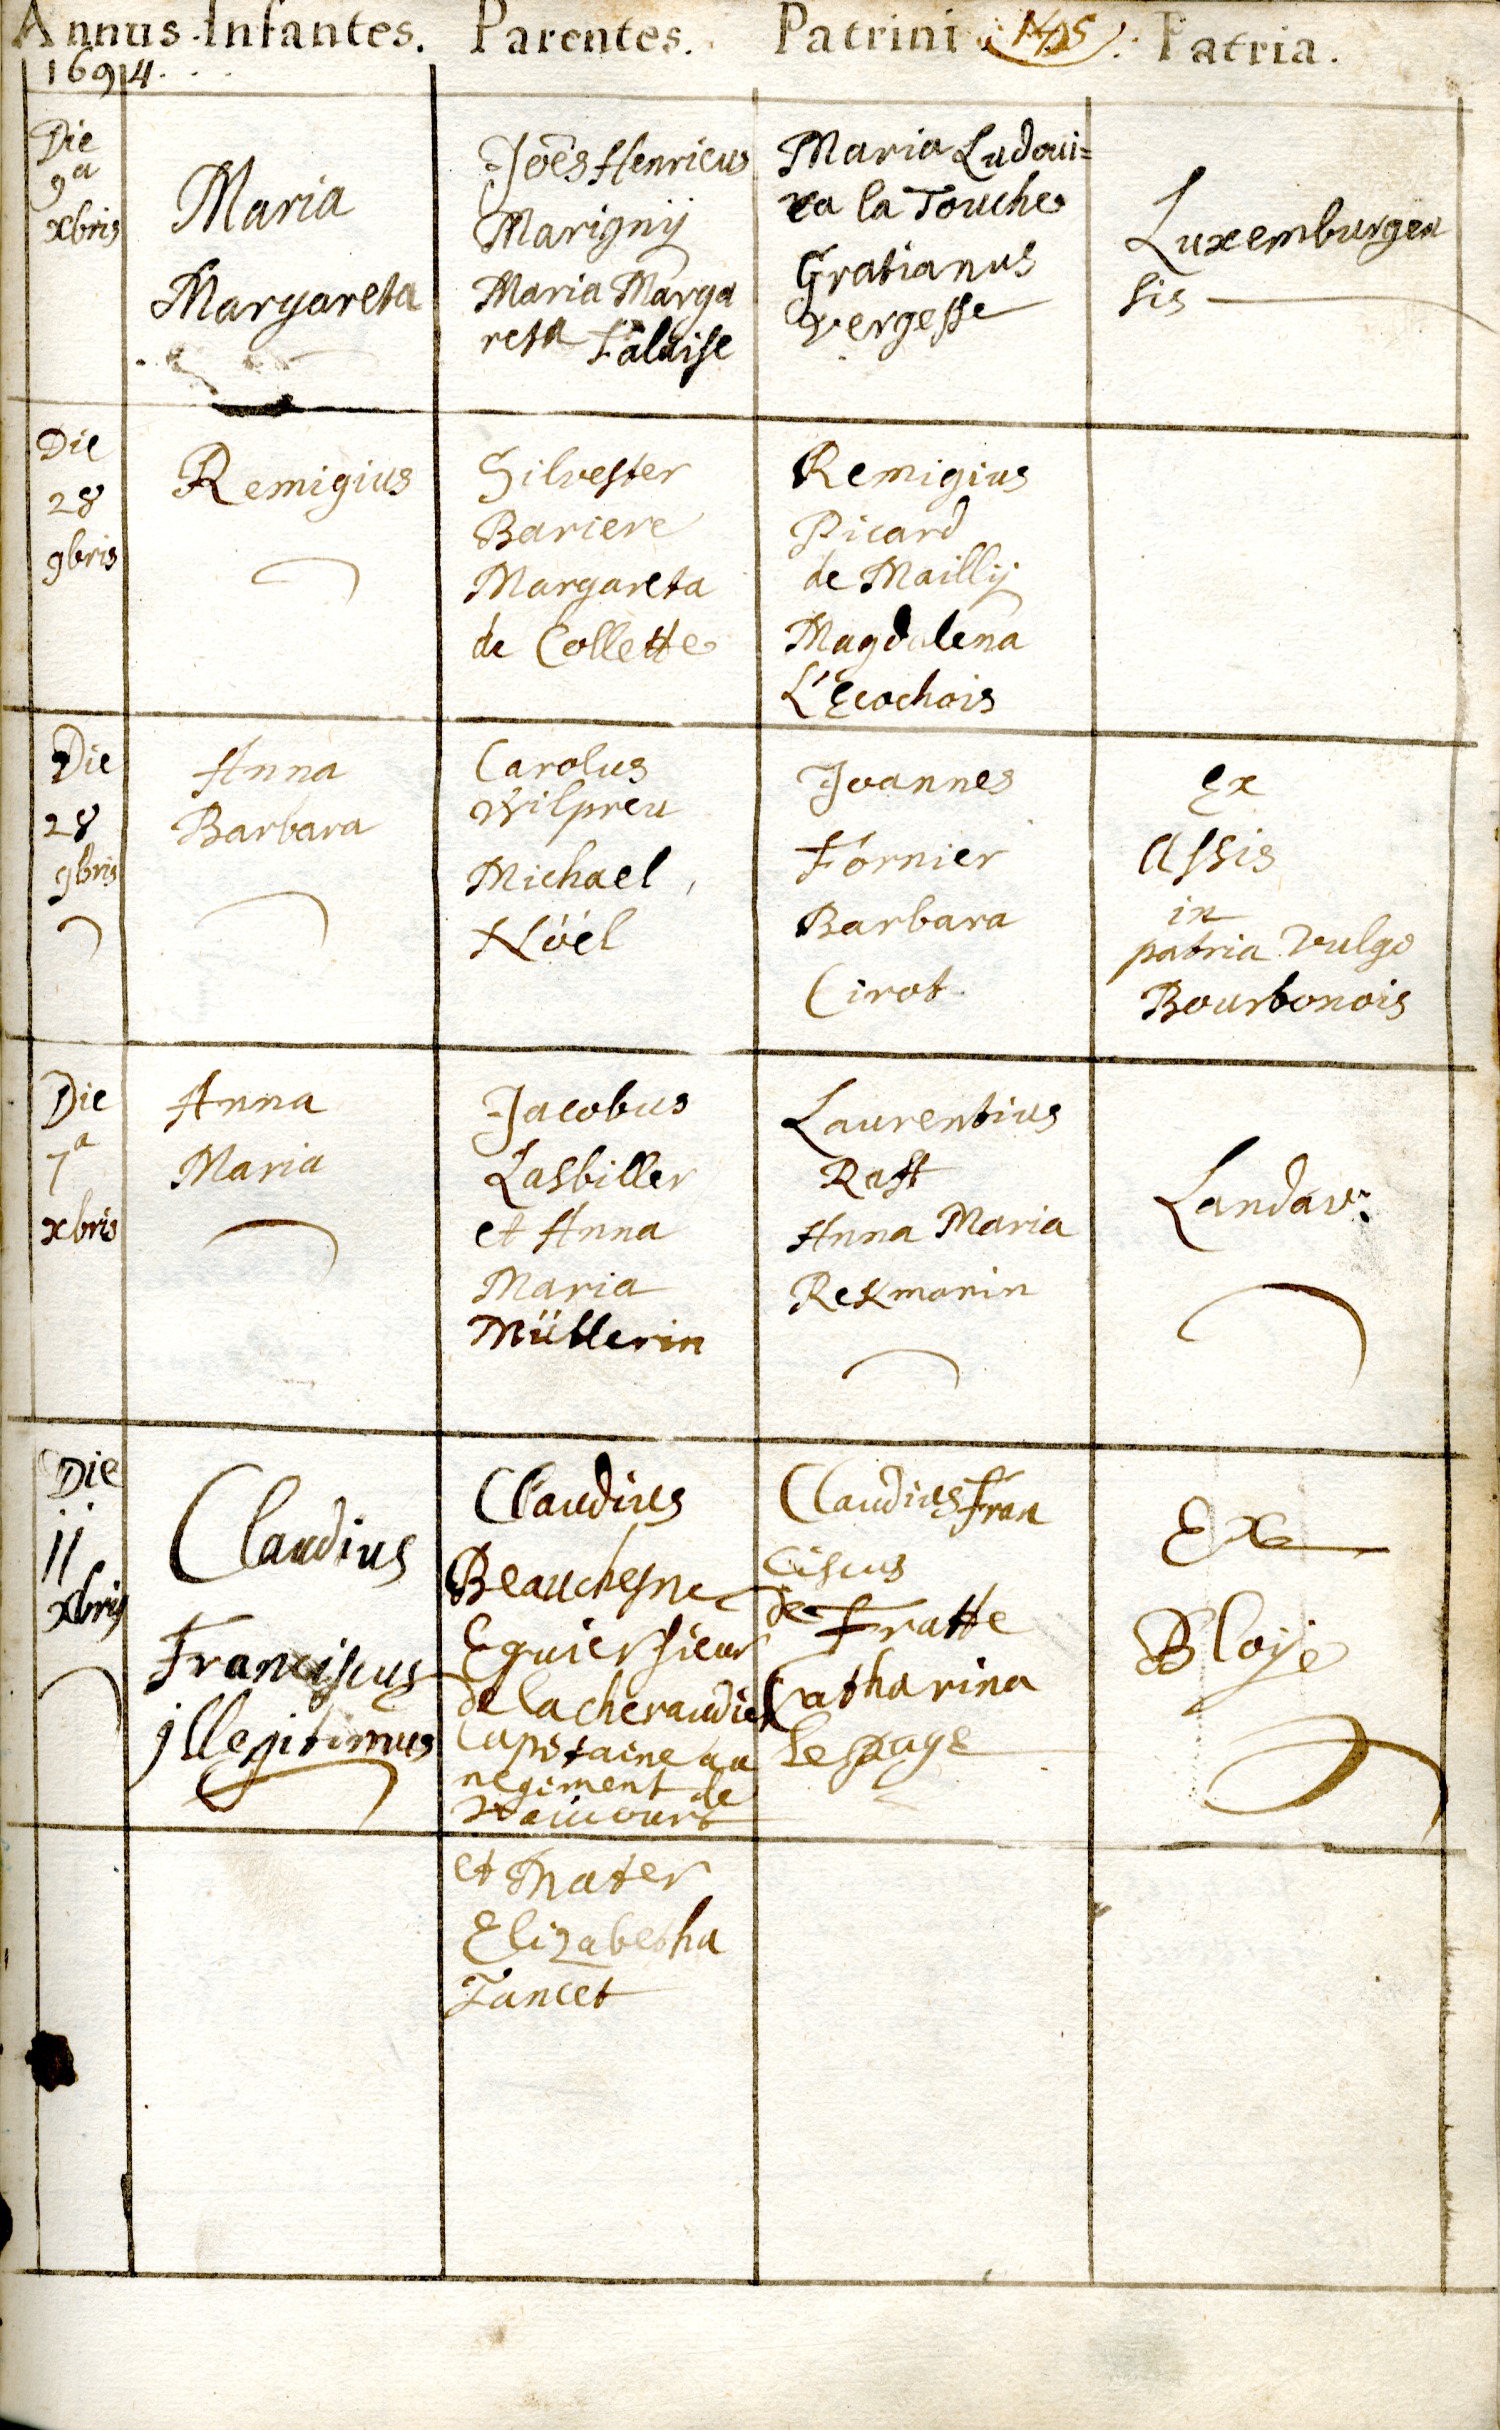 Annus Infantes. Parentes. Patrini Patria.
1694
Die
9a
xbris
Maria
Margareta
Joẽs Henricus
Marignÿ
Maria Marga
reta Falaise
Maria Ludoui=
ca la Touche
Gratianus
Vergesse
Luxemburgen
sis
Die
28
9bris
Remigius
Silvester
Bariere
Margareta
de Collette
Remigius
Picard
de Maillÿ
Magdalena
L'Ecochois
Die
28
9bris
Anna
Barbara
Carolus
Wilpreu
Michael
Nöel
Joannes
Fornier
Barbara
Cirot
Ex
Assis
in
patria vulgo
Bourbonois
Die
7a
xbris
Anna
Maria
Jacobus
Lasbiller
et Anna
Maria
Müllerin
Laurentius
Rast
Anna Maria
Rekmanin
Landav:
Die
11
xbris
Claudius
Franciscus
jllegitimus
Claudius
Beauchesne
Equier sieur
de la cheraudie
Capitaine au
regiment de
et Mater
Elizabetha
Tancet
Claudius Fran
ciscus
de Fratte
Catharina
lepage
Ex
Bloije